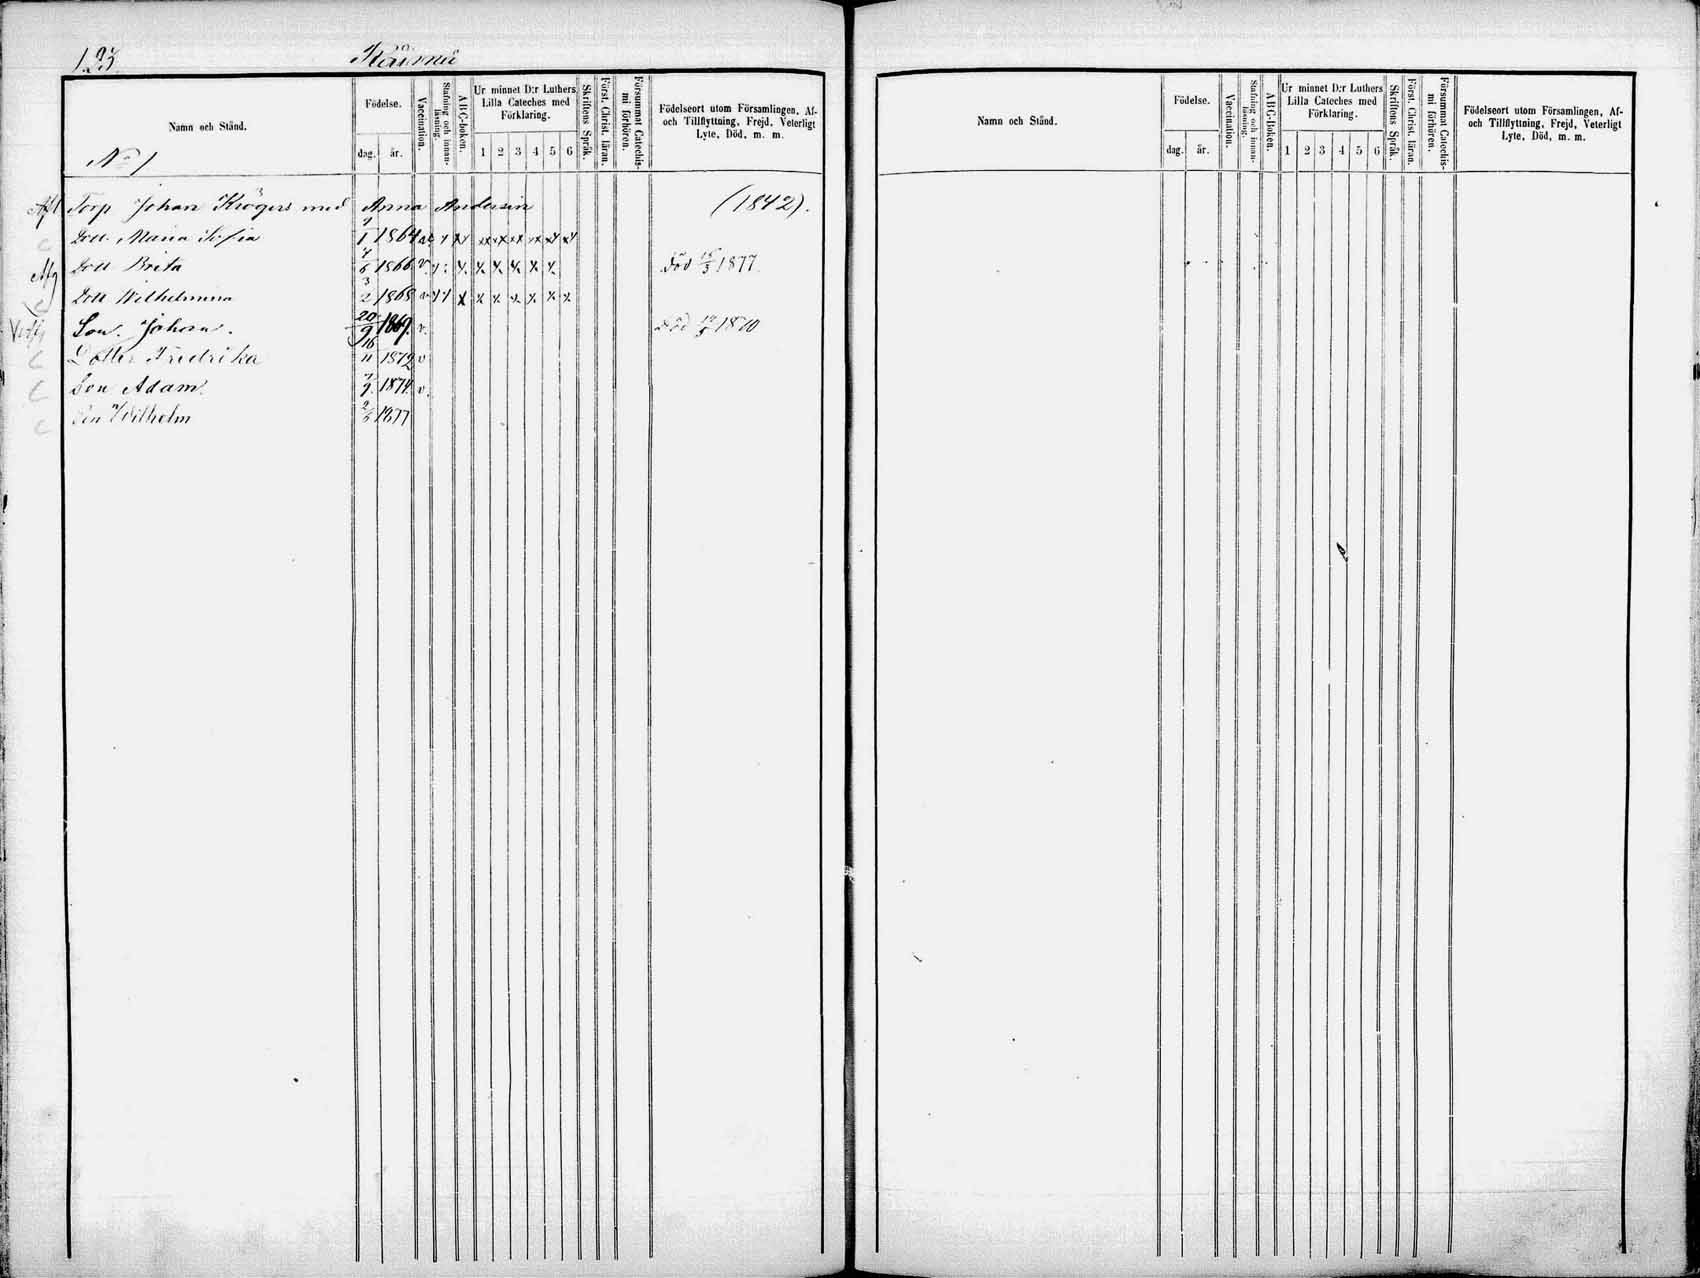 123.
Namn och Stånd.
Födelse.
dag. år.
Vaccination.
Stafning och innanläsning.
ABC-boken.
Ur minnet D:r Luthers Lilla Cateches med Förklaring.
1 2 3 4 5 6
Skriftens Språk.
Först. Christ. läran.
Försummat Catechismi förhören.
Födelseort utom Församlingen, Af- och Tillflyttning, Frejd, Veterligt Lyte, Död, m. m.
No 1
Torp Johan Krögers med Anna Andersin (1842).
Dott. Maria Sofia 1 1864
Dott Brita 1866 v. Död 1877.
Dott Wilhelmina 3/2 1868 v
Son. Johan. 20/9 1869. v. Död 1870
Dotter Fredrika 16/11 1872 v
Son Adam. 1874. v.
Son Wilhelm 1877
Namn och Stånd.
Födelse.
dag. år.
Vaccination.
Stafning och innanläsning.
ABC-boken.
Ur minnet D:r Luthers Lilla Cateches med Förklaring.
1 2 3 4 5 6
Skriftens Språk.
Först. Christ. läran.
Försummat Catechismi förhören.
Födelseort utom Församlingen, Af- och Tillflyttning, Frejd, Veterligt Lyte, Död, m. m.